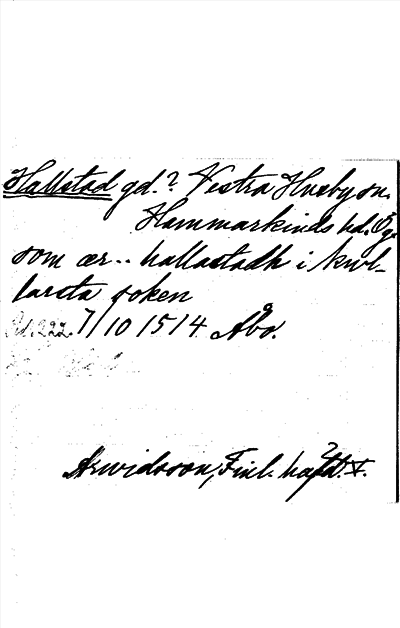 Hallstad gd.? Vestra Husby sn.
Hammarkinds hd. Ög.
som ær.. hallastadh i kwl-
larsta soken
Sid. 222. 7/10 1514 Åbo.
Arwidsson, Finl. häfd. V.